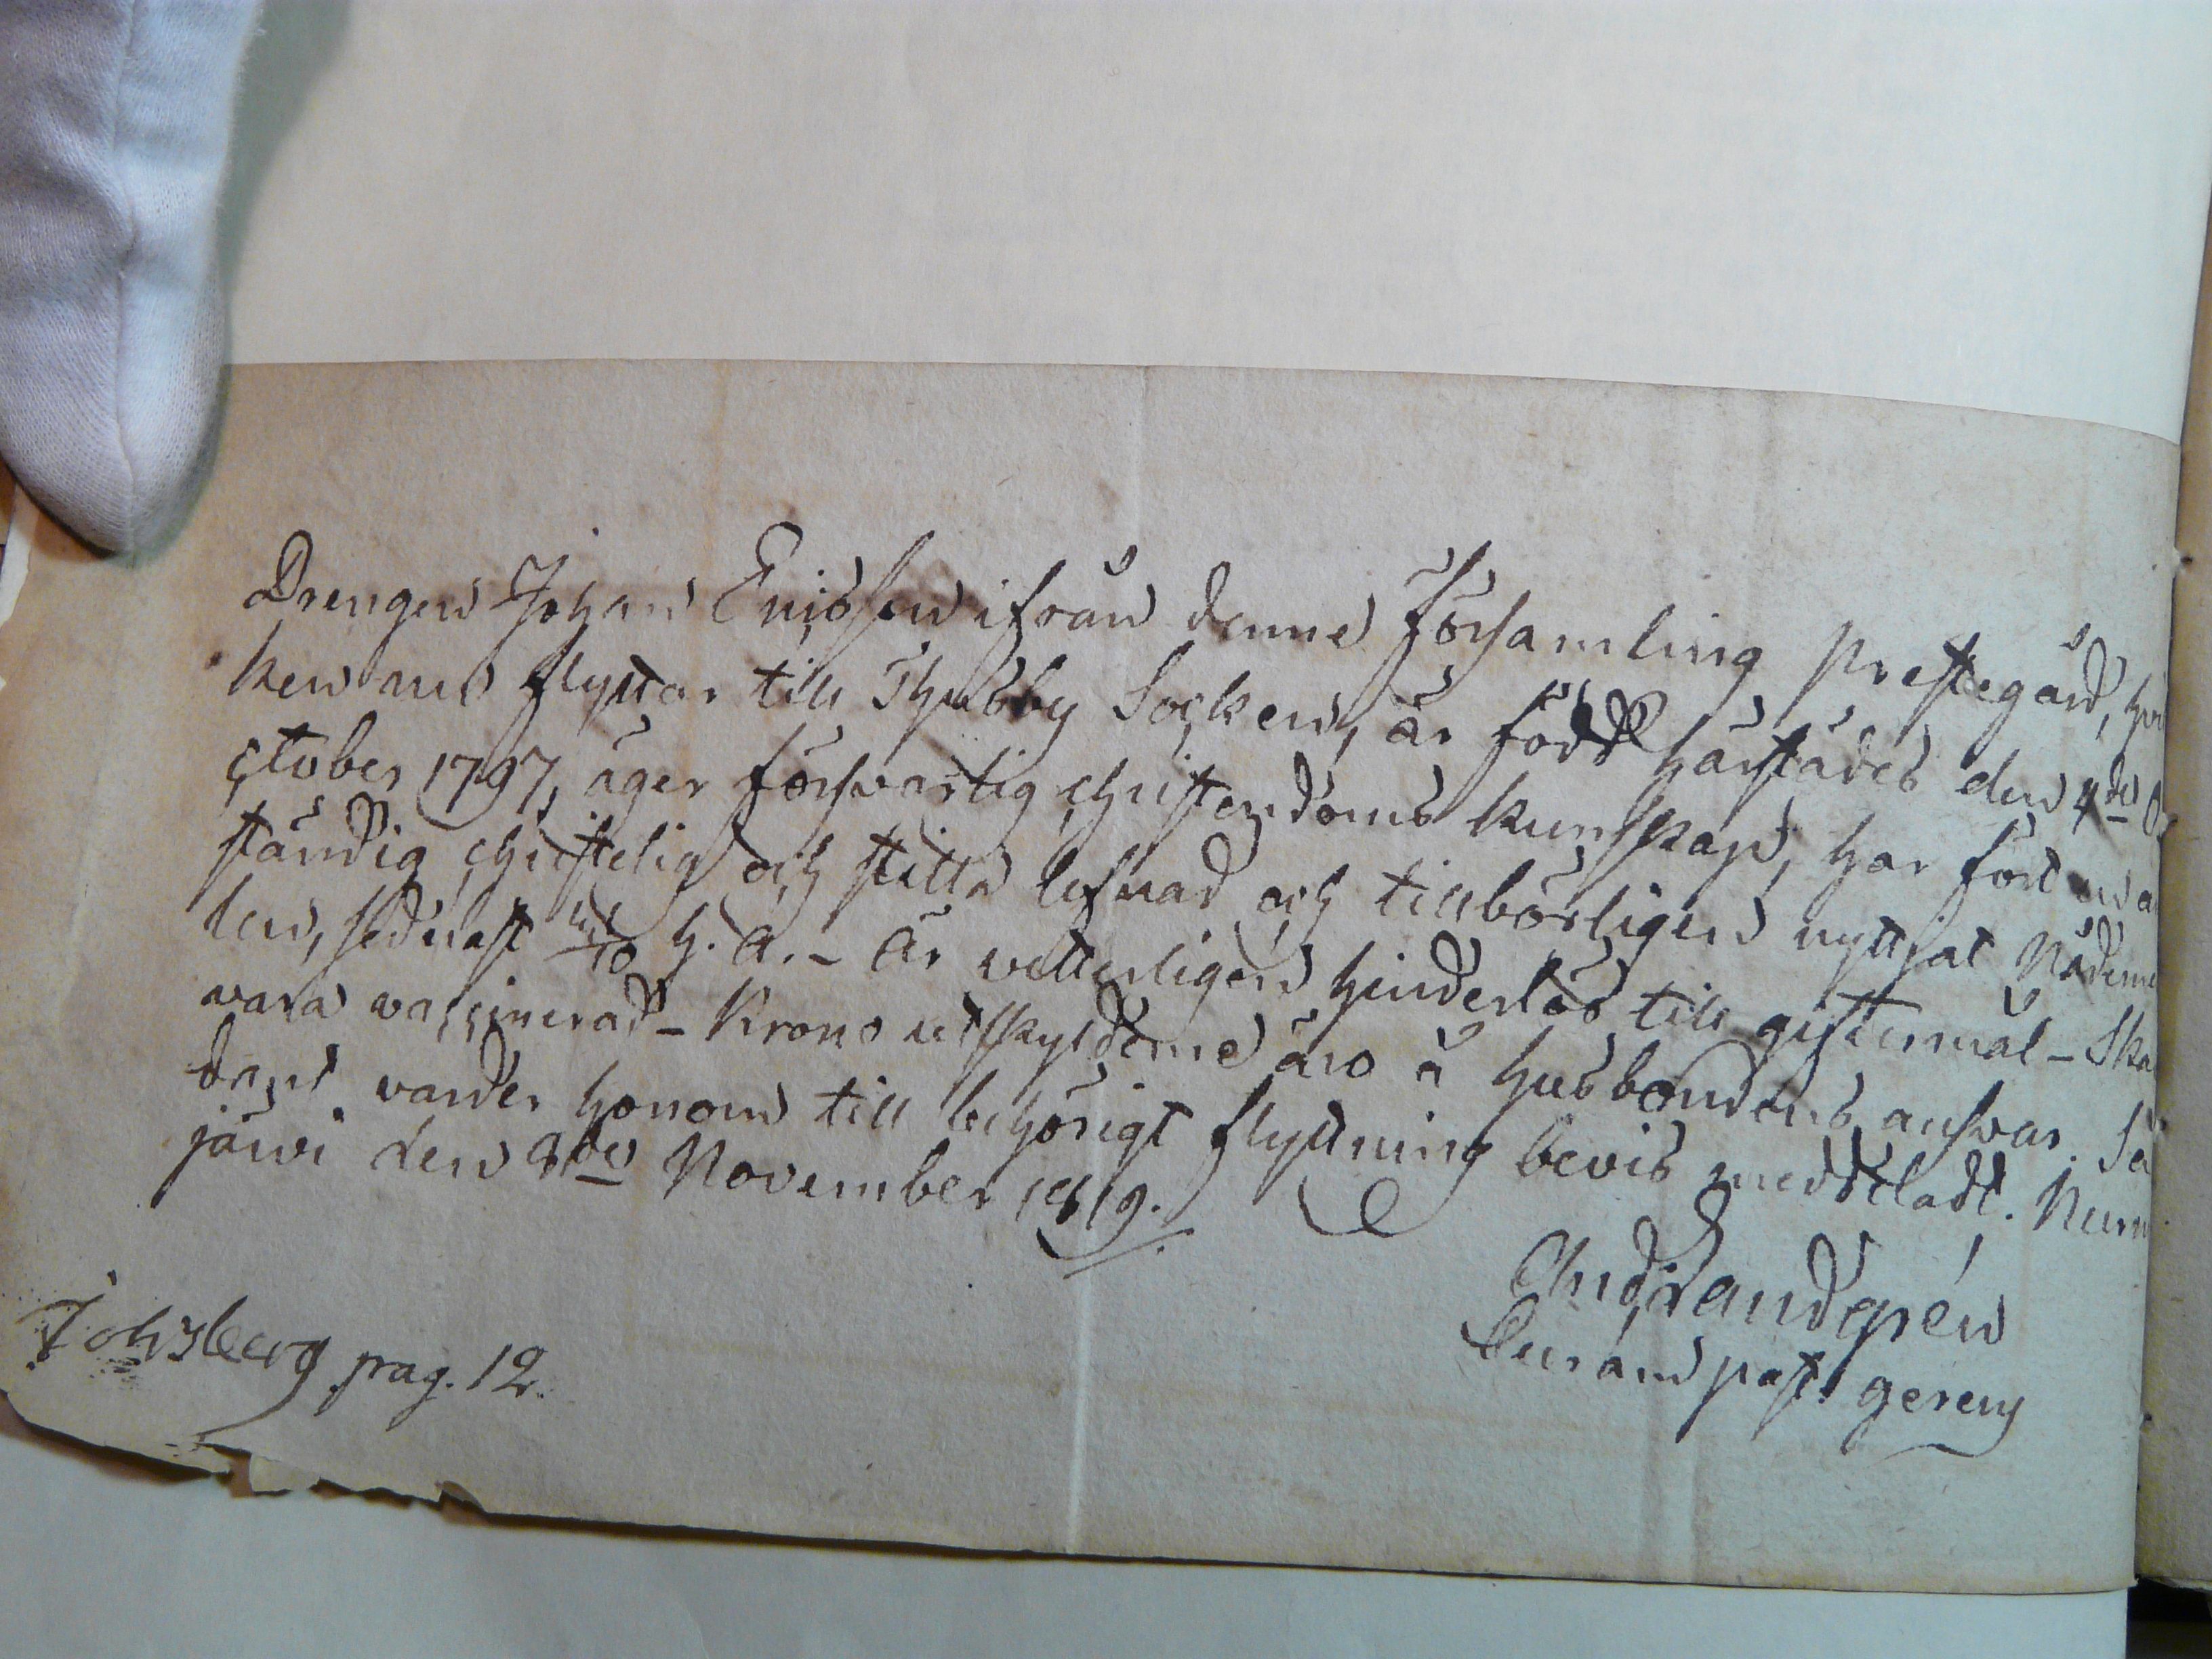 Drengen Johan Ericsson ifrån denne Församling Prestegård, hvil
ken nu flyttar till Thusby Socken, är född härstädes den 4de O
ctober 1797, äger försvarlig christendoms kunskap, har fört en an
ständig christelig och stilla lefnad och tillbörligen nyttjat Nådeme
len, sednast /10 h. a. - Är vetterligen hinderlös till giftermål - Ska
vara vaccinerad - Krono utskylderne äro å husbondens ansvar. Så
dant varder honom till behörigt flyttning bevis meddeladt. Nurm
järvi den 9de November 1819.
And Landgrén
past. gerens
Johsberg pag. 12.